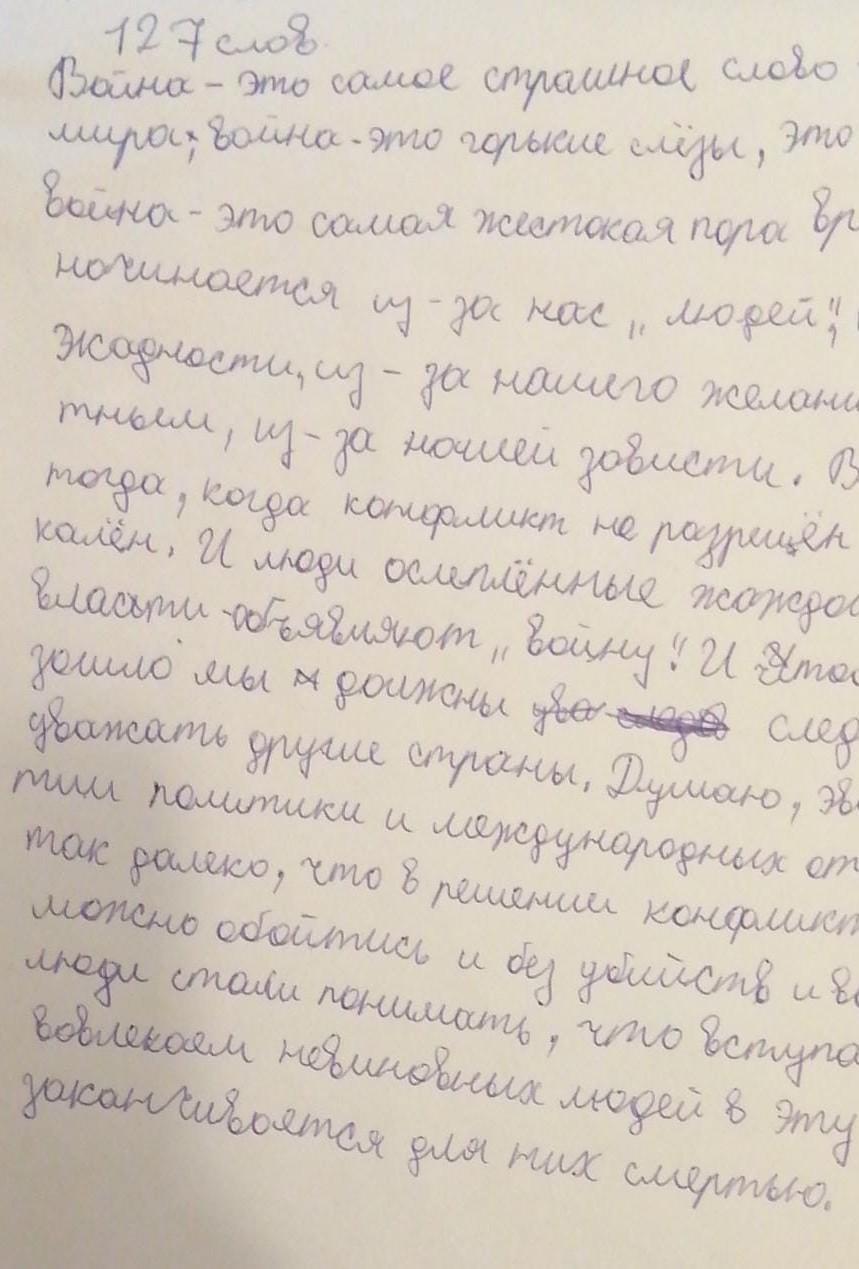 127 слов.
Война - это самое страшное слово
мира; война - это горькие слёзы, это
война - это самая жестокая пора вр
начинается из-за нас „людей",
жадности, из-за нашего желани
тным, из-за нашей зависти. В
тогда, когда конфликт не разрешён
калён. И люди ослеплённые жаждо
власти объявляют „войну". И что
зошло мы должны след
уважать другие страны. Думаю, эв
тии политики и международных от
так далеко, что в решении конфликт
можно обойтись и без убийств и во
люди стали понимать, что вступа
вовлекаем невиновных людей в эту
заканчивается для них смертью.